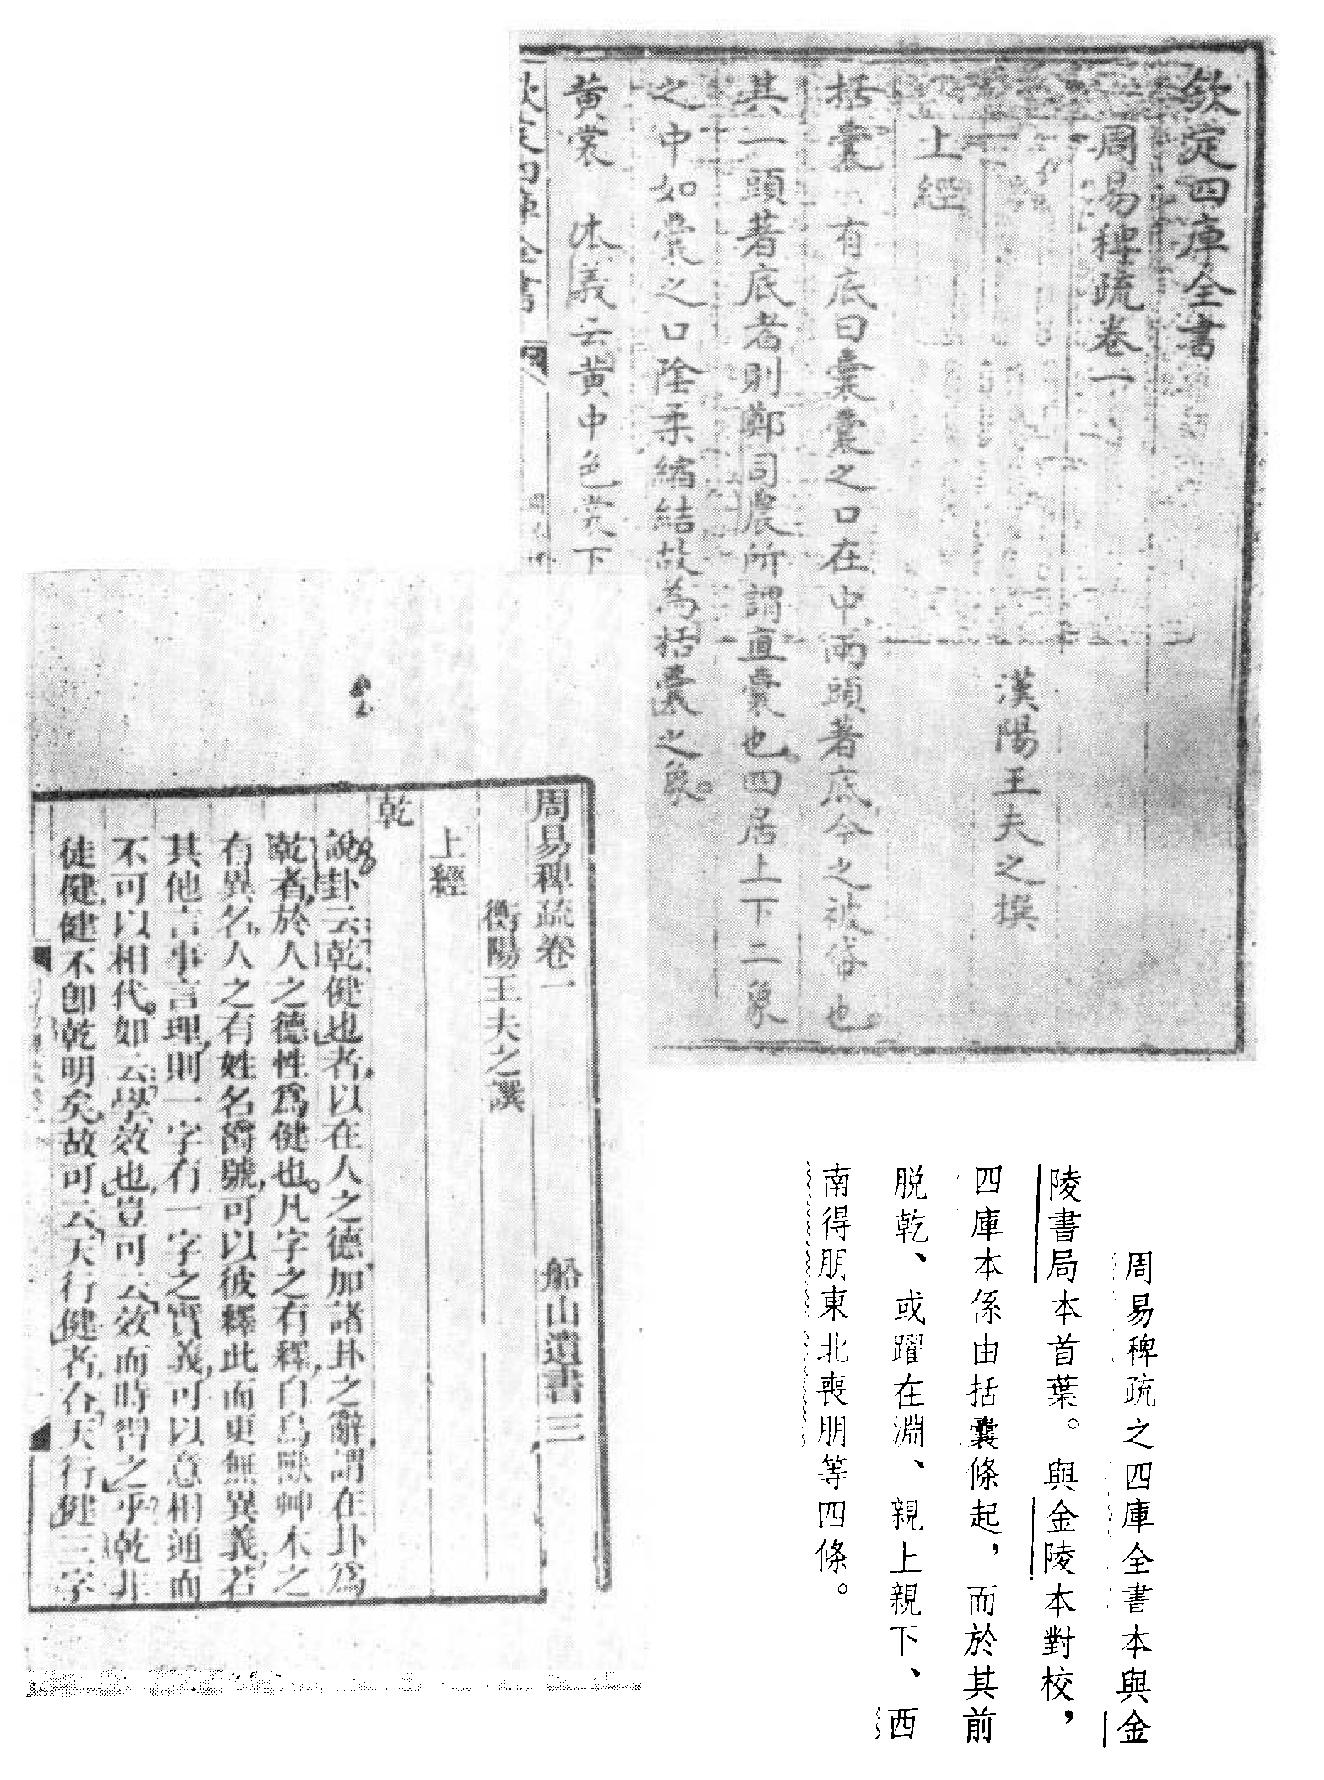 欽定四庫全書
周易稗疏卷一
漢陽王夫之撰
上經
括囊 有底曰囊囊之口在中兩頭著底今之被帒也。
其一頭著底者則鄭司農所謂直囊也。四居上下二象
之中如囊之口陰柔縮結故為括囊之象。
黃裳 本義云黃中色裳下
欽定四庫全書
周易稗疏卷一 船山遺書三
衡陽王夫之譔
上經
乾
說卦云乾健也者以在人之德加諸卦之辭謂在卦爲
乾者於人之德性爲健也。凡字之有釋自鳥獸艸木之
有異名人之有姓名爵號可以彼釋此而更無異義若
其他言事言理則一字有一字之實義可以意相通而
不可以相代如云學效也豈可云效而時習之乎乾非
徒健健不卽乾明矣故可云天行健者合天行健三字
周易稗疏之四庫全書本與金
陵書局本首葉。與金陵本對校，
四庫本係由括囊條起，而於其前
脱乾、或躍在淵、親上親下、西
南得朋東北喪朋等四條。